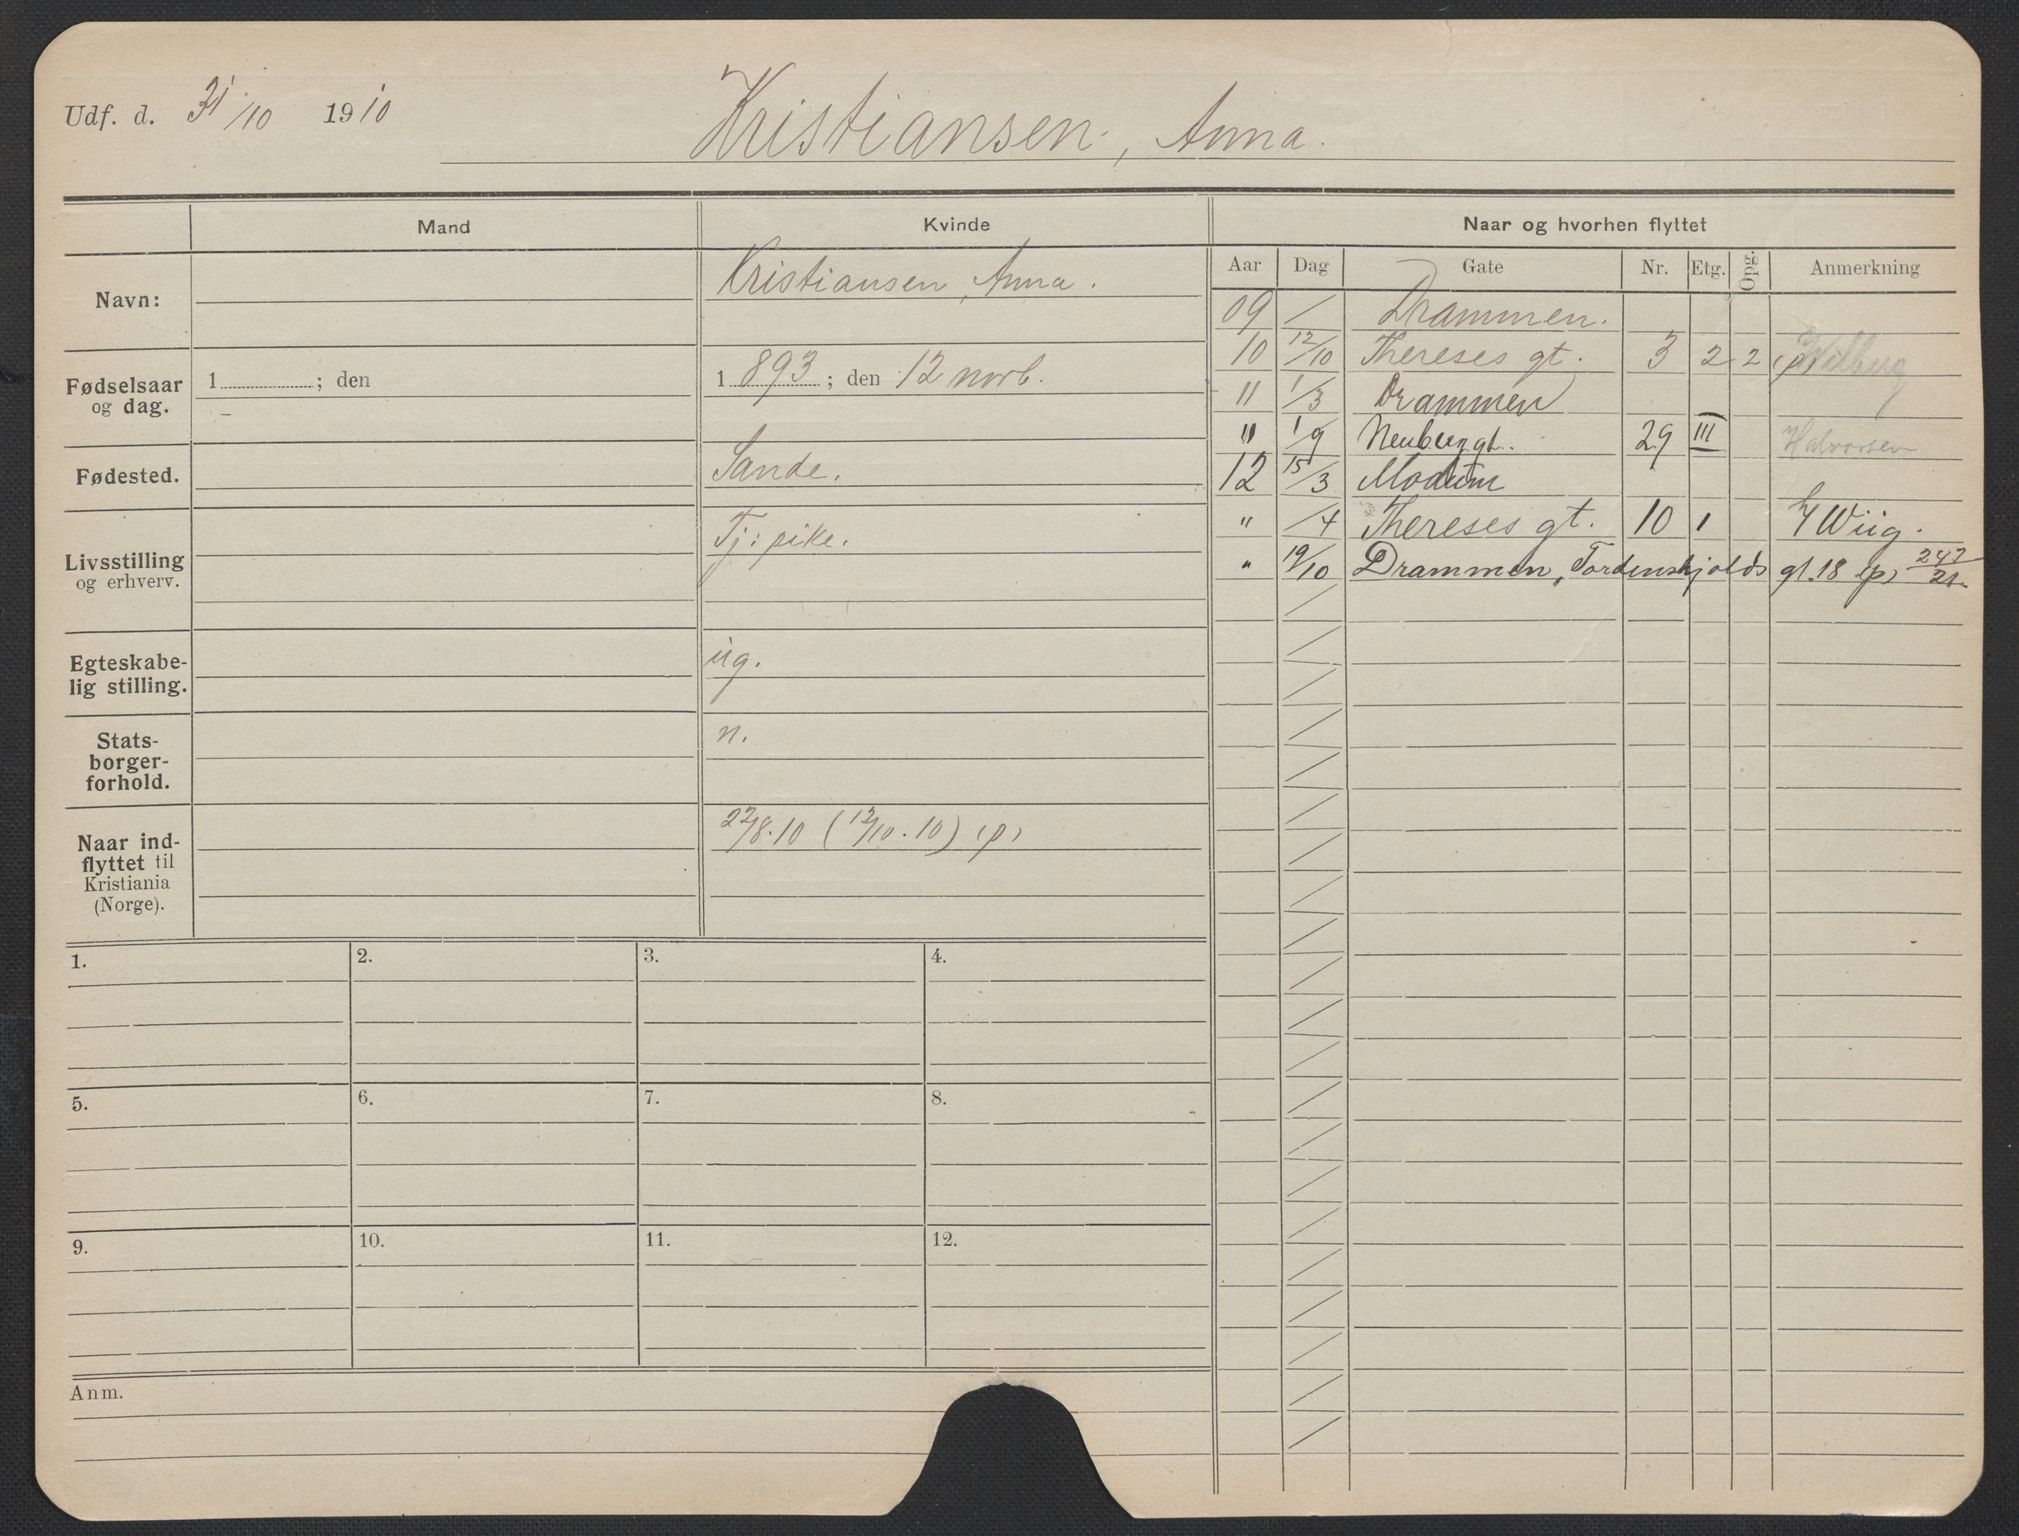 Udf. d. 31/10 1910
Kristiansen, Anna.
Mand
Kvinde
Naar og hvorhen flyttet
Navn:
Kristiansen, Anna.
Fødselsaar
og dag.
1 ; den
1893; den 12 novb.
Fødested.
Sande.
Livsstilling
og erhverv.
Tj: pike.
Egteskabe-
lig stilling.
ug.
Stats-
borger-
forhold.
n.
Naar ind-
flyttet til
Kristiania
(Norge).
22/8.10 (12/10.10) (p)
Aar Dag Gate Nr. Etg. Opg. Anmerkning
09 / Drammen.
10 12/10 Thereses gt. 3 2 2 (p)
11 1/3 Drammen
" 1/9 Neuberggt. 29 III Halvorsen
12 15/3 Modum
" /4 Thereses gt. 10 1 Wiig.
" 19/10 Drammen, Tordenskjolds gt. 18 (p) 247/21
1.
2.
3.
4.
5.
6.
7.
8.
9.
10.
11.
12.
Anm.